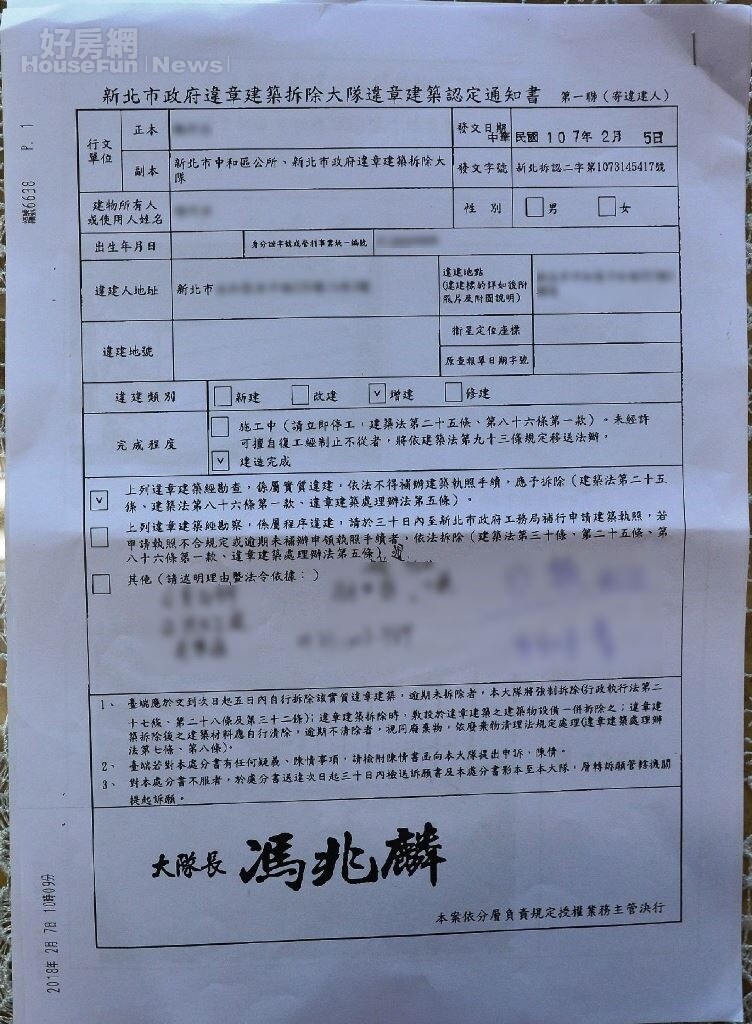 好房網
HouseFun News
新北市政府違章建築拆除大隊違章建築認定通知書 第一聯(寄違建人)
行文單位
正本
發文日期
中華民國107年2月 5日
副本
新北市中和區公所、新北市政府違章建築拆除大
隊
發文字號
新北拆認二字第1073145417號
建物所有人
或使用人姓名
性 別
男
女
出生年月日
身分證字號或營利事業統一編號
違建人地址
新北市
違建地點
(違建標的詳如後附
照片及附圖說明)
違建地號
衛星定位座標
原查報單日期字號
違建類別
新建
改建
v 增建
修建
完成程度
施工中(請立即停工,建築法第二十五條、第八十六條第一款)。未經許
可擅自復工經制止不從者,將依建築法第九十三條規定移送法辦。
v 建造完成
v 上列違章建築經勘查,係屬實質違建,依法不得補辦建築執照手續,應予拆除(建築法第二十五
條、建築法第八十六條第一款、違章建築處理辦法第五條)。
上列違章建築經勘察,係屬程序違建,請於三十日內至新北市政府工務局補行申請建築執照,若
申請執照不合規定或逾期未補辦申領執照手續者,依法拆除(建築法第三十條、第二十五條、第
八十六條第一款、違章建築處理辦法第五條)。
其他(請述明理由暨法令依據:)
1、 臺端應於文到次日起五日內自行拆除該實質違章建築,逾期未拆除者,本大隊將強制拆除(行政執行法第二
十七條、第二十八條及第三十二條);違章建築拆除時,敷設於違章建築之建築物設備一併拆除之;違章建
築拆除後之建築材料應自行清除,逾期不清除者,視同廢棄物,依廢棄物清理法規定處理(違章建築處理辦
法第七條、第八條)。
2、 臺端若對本處分書有任何疑義、陳情事項,請檢附陳情書函向本大隊提出申訴,陳情。
3、 對本處分書不服者,於處分書送達次日起三十日內檢送訴願書及本處分書影本至本大隊,層轉訴願管轄機關
提起訴願。
大隊長 馮兆麟
本案依分層負責規定授權業務主管決行
6638 P. 1
2018年 2月 7日 10時09分